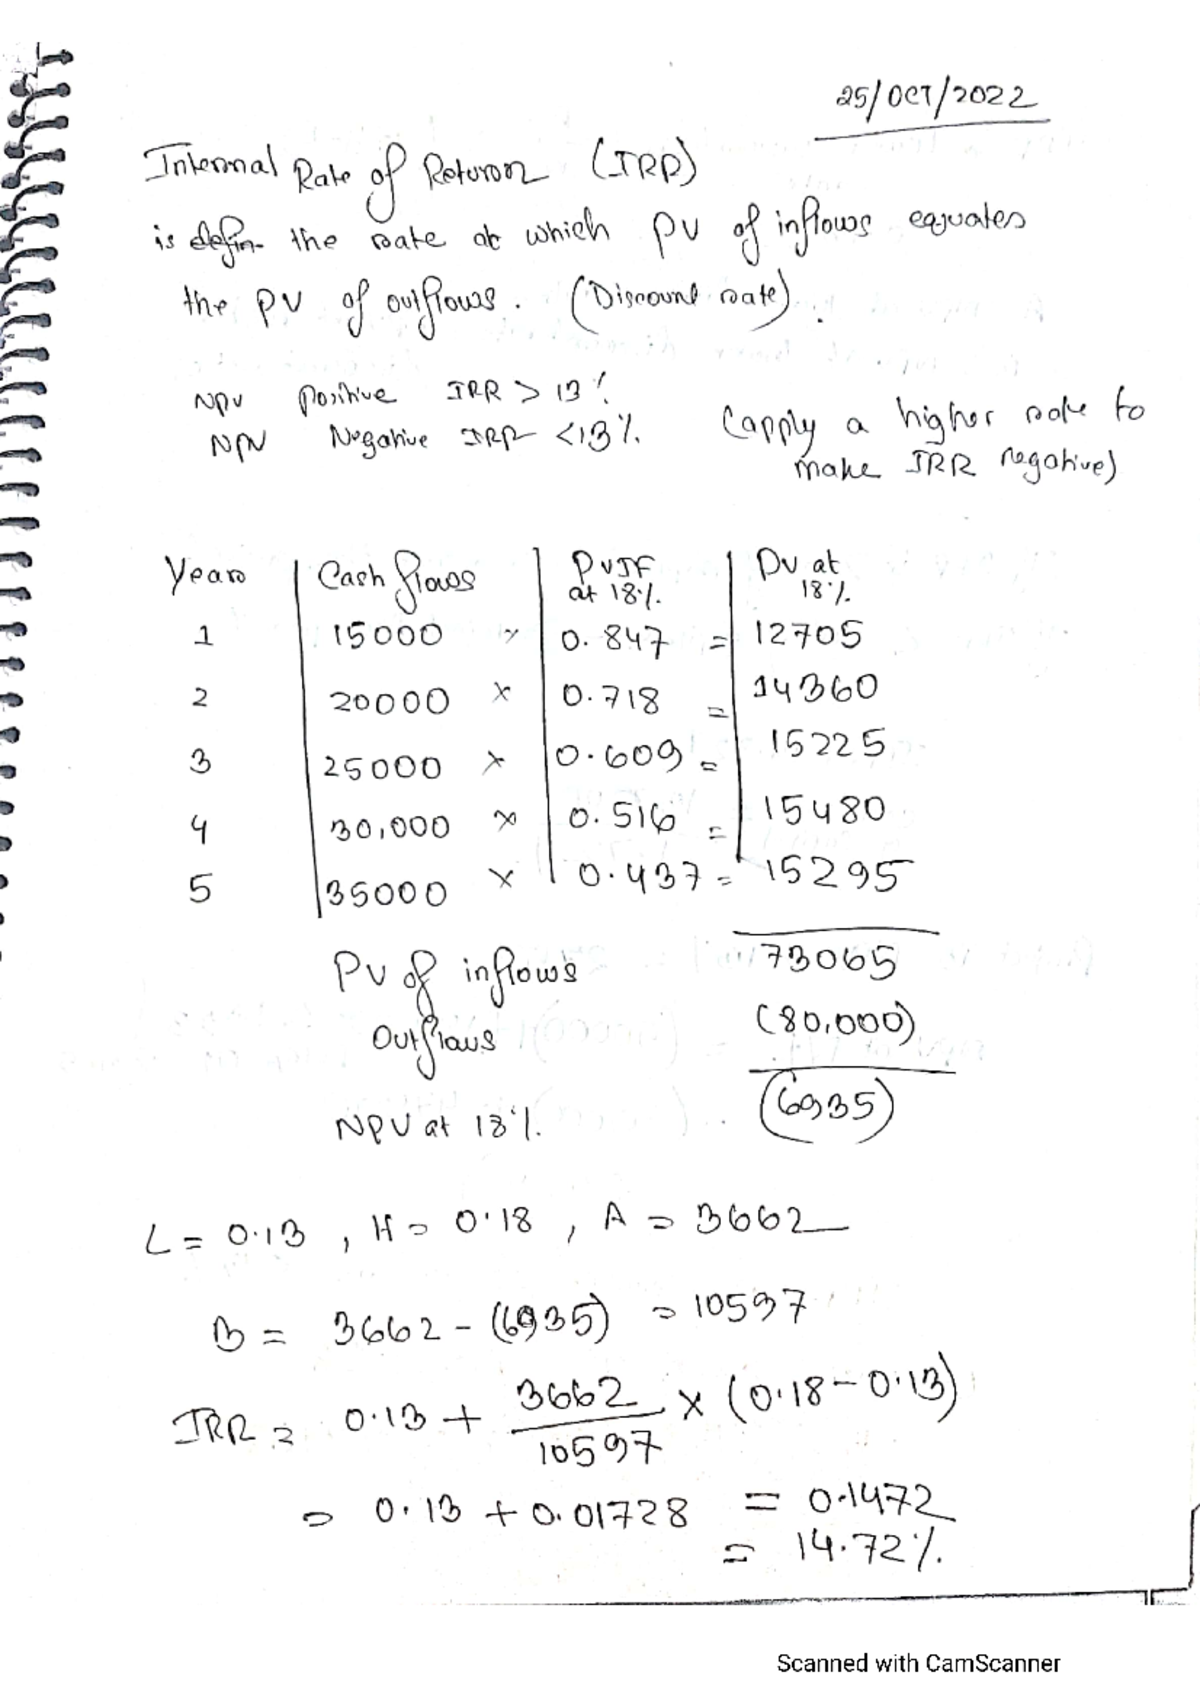 25/OCT/2022
Internal Rate of Return (IRR)
is defin the rate at which PV of inflows equates
the PV of outflows. (Discount rate).
NPV Positive IRR > 13%
NPV Negative IRR <13%. (apply a higher rate to
make IRR negative)
Years | Cash flows | PVIF at 18%. | PV at 18%.
1 | 15000 × | 0.847 = | 12705
2 | 20000 × | 0.718 = | 14360
3 | 25000 × | 0.609 = | 15225
4 | 30,000 × | 0.516 = | 15480
5 | 35000 × | 0.437 = | 15295
PV of inflows 73065
Outflows (80,000)
NPV at 18%. (6935)
L = 0.13 , H = 0.18 , A = 3662
B = 3662 - (6935) = 10597
IRR = 0.13 + 3662/10597 × (0.18 - 0.13)
= 0.13 + 0.01728 = 0.1472
= 14.72%.
Scanned with CamScanner